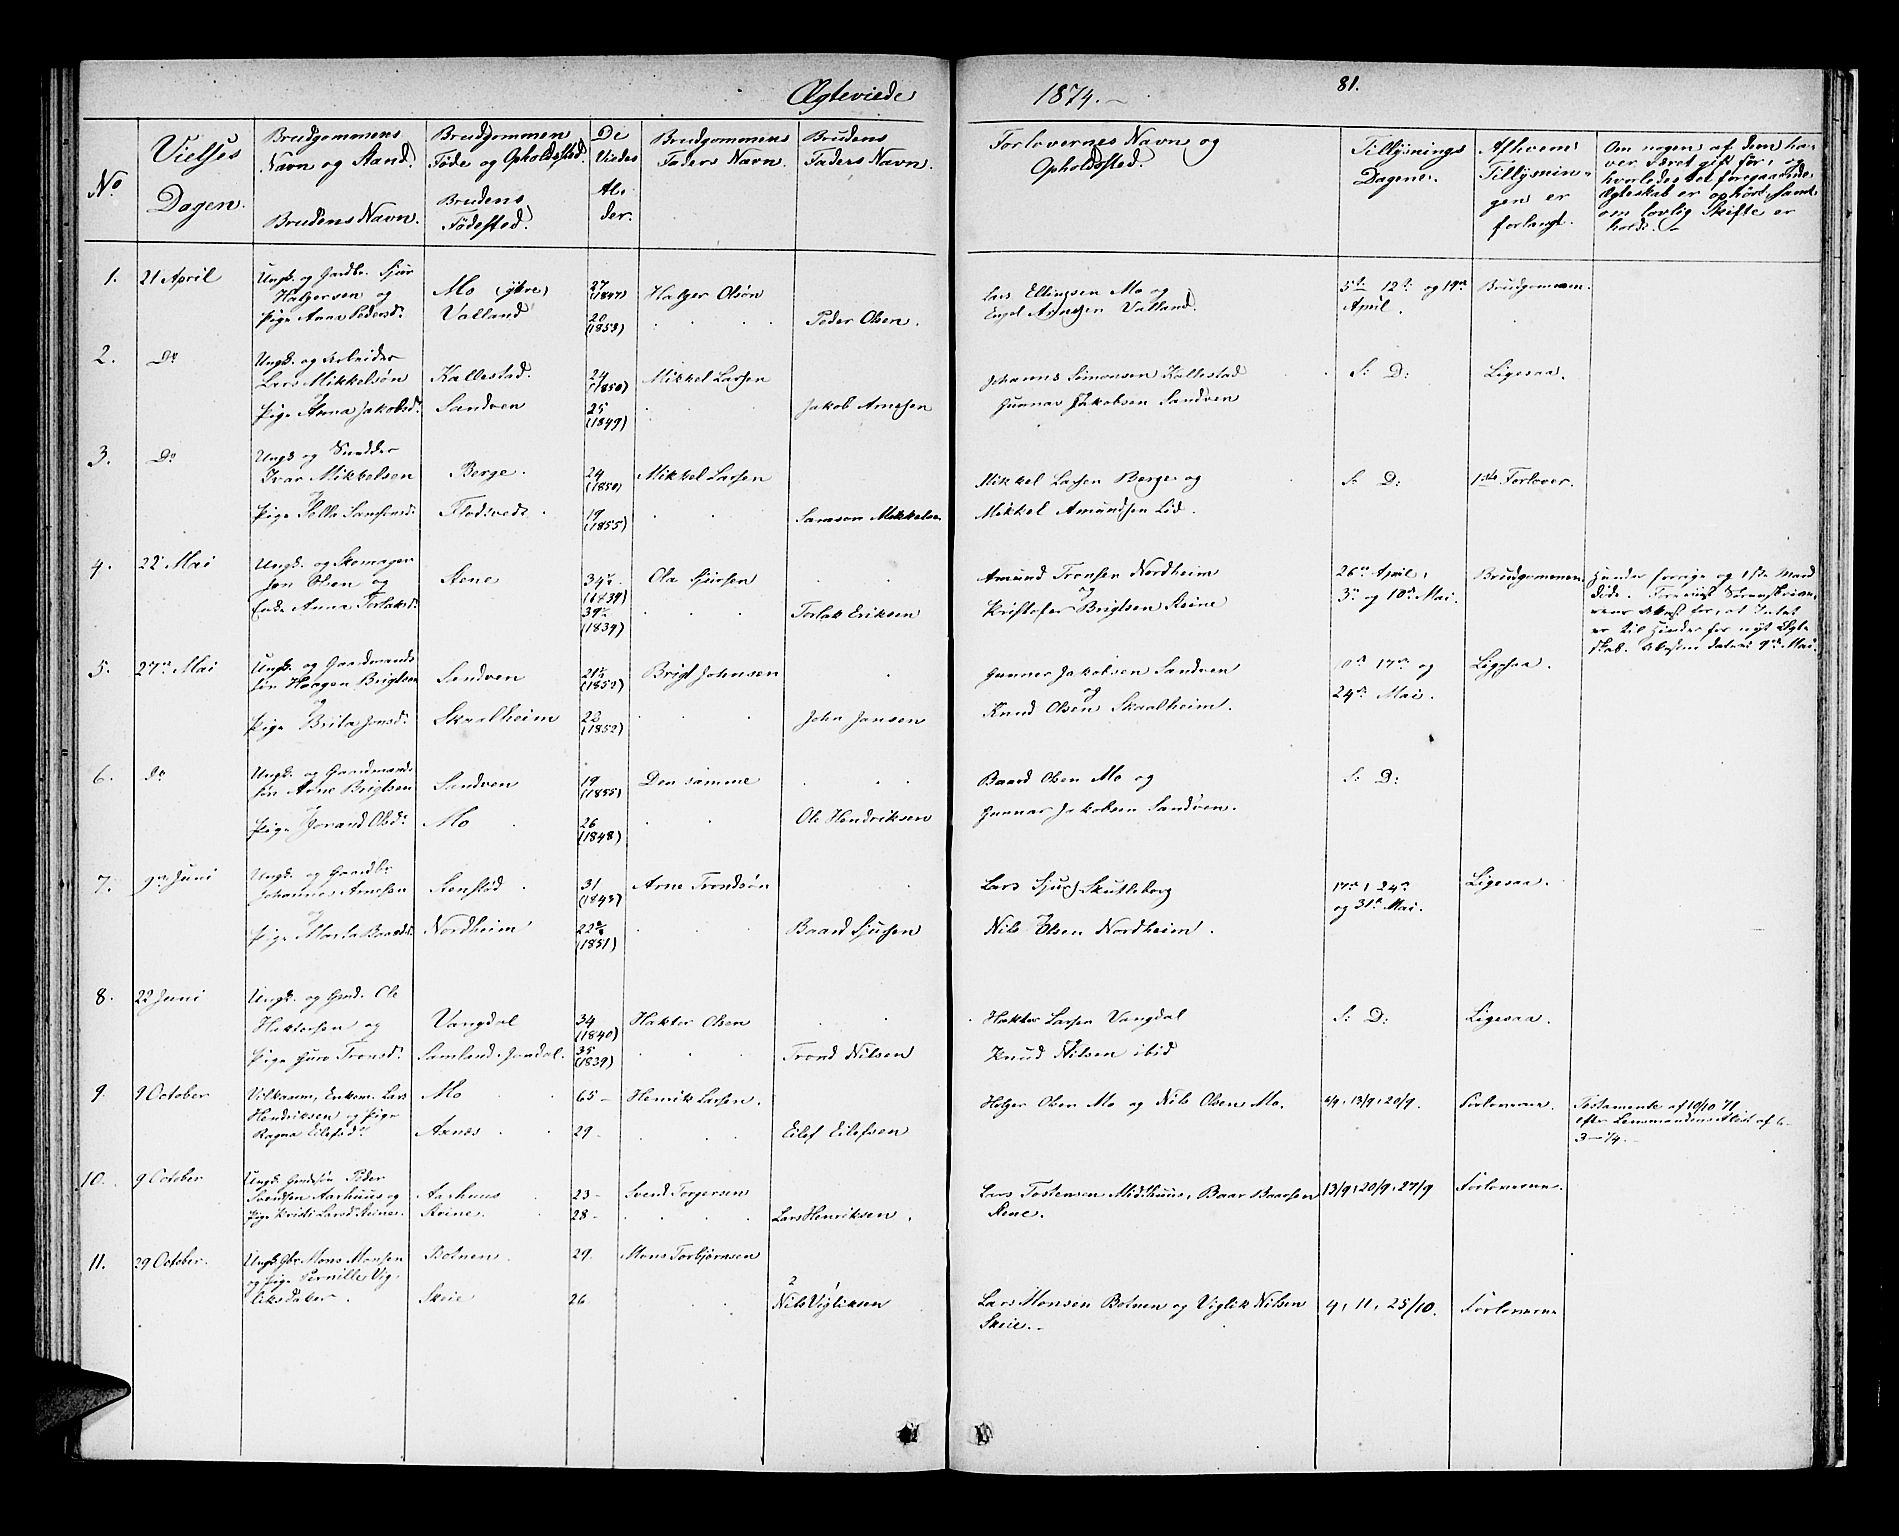 Ægteviede 1874. 81.
No
Vielses Dagen.
Brudgommens Navn og Stand. Brudens Navn.
Brudgommen Føde og Opholdssted. Brudens Fødested.
De Viedes Alder.
Brudgommens Faders Navn.
Brudens Faders Navn.
Forlovernes Navn og Opholdssted.
Tillysnings Dagene.
Af hvem Tillysningen er forlangt.
Om nogen af dem ha-
ver været gift før, og
hvorledes det foregaaende
Ægteskab er ophört, samt
om lovlig Skifte er
holdt.
1. 21 April Ungk. og Gaardbr. Sjur
Halgersen og Mo (ytre) 27 (1847) Halger Olsøn Lars Ellingsen Mo og 5te 12te og 19de April. Brudgommen.
Pige Anna Pedersd. Valland 20 (1853) Peder Olsen. Engel Valland.
2. Do Ungk. og Arbeider
Lars Mikkelsøn Kallestad. 24 (1850) Mikkel Larsen Johannes Simonsen Kallestad S: D: Ligesaa.
og
Pige Anna Jakobsd. Sandven 25 (1849) Jakob Arnesen Gunnar Jakobsen Sandven
3. Do Ungk og
Ivar Mikkelsen Berge. 24 (1850) Mikkel Larsen Mikkel Larsen Berge og S: D: 1ste Forlover.
og
Pige Samsonsd. 19 (1855) Samson Mikkelsen Mikkel Amundsen Lid.
4. 22 Mai Ungk. og Skomager
Jon Olsen og Stene 34 (1839) Ola Sjursen Amund Tronsen Nordheim 26de April, 3de og 10de Mai. Brudgommen
Enke Anna Torlaksd. 34 (1839) Torlak Eriksen og Kristofer Brigtsen Steine
Hendes forrige og 1ste Mand
døde. Forevist Sorenskrive-
rens Attest for, at Intet
er til Hinder for nyt Ægte-
skab. Attesten dateret 9de Mai.
5. 27de Mai Ungk. og Gaardmands
søn Haagen Brigtsen Sandven 21½ (1852) Brigt Johnsen Gunnar Jakobsen Sandven 10de 17de og 24de Mai. Ligesaa.
og
Pige Brita Jonsd. Skaalheim 22 (1852) John Jansen Knud Olsen Skaalheim.
6. Do Ungk. og Gaardmands
søn Arne Brigtsen Sandven 19 (1855) Den samme Baard Olsen Mo og S: D:
og
Pige Jorand Olsd. Mo 26 (1848) Ole Hendriksen Gunnar Jakobsen Sandven.
7. 9de Juni Ungk. og Gaardbr.
Johannes Arnesen 31 (1843) Arne Trondsøn Lars Sjurs. Skutleberg 17de, 24de og 31te Mai. Ligesaa.
og
Pige Marta Baardsd. Nordheim 22 (1851) Baard Sjursen Nils Olsen Nordheim.
8. 22 Juni Ungk. og Gmd. Ole
Haktorsen og Vangdal 34 (1840) Haktor Olsen Haktor Larsen Vangdal S: D: Ligesaa.
Pige Guro Tronsd. Samland. Jondal. 35 (1839) Trond Nilsen Knud Nilsen ibid
9. 9 October Vilkaarm, Enkem. Lars Mo 65 – Henrik Larsen. Halger Olsen Mo og Nils Olsen Mo. 6/9, 13/9, 20/9. Forloverne.
Hendriksen og Pige
Ragna Eilefsd. Axnes 29 – Eilef Eilefsen
Testamente af 10/10 71
efter Lensmandens Attest af 6–
3–74.–
10. 9 October Ungk. Gmdsøn Peder
Svendsen Aarhuus og Aarhuus 23 – Svend Torgersen Lars Tostensen Midthuus, Baar Baarsen 13/9, 20/9, 27/9 Forloverne.
Pige Kristi Larsd. Steine. Steine. 28 – Lars Henriksen. Stene.
11. 29 October. Ungk. Gbr. Mons Monsen Botnen. 29. Mons Torbjørnsen
og Pige Pernille Vig-
liksdatter. Skeie 26 2 1
Nils Vigliksen Lars Monsen Botnen og Viglik Nilsen 4, 11, 25/10. Forloverne
Skeie.–